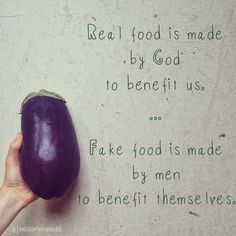 Real food is made
by God
to benefit us.
...
Fake food is made
by men
to benefit themselves.